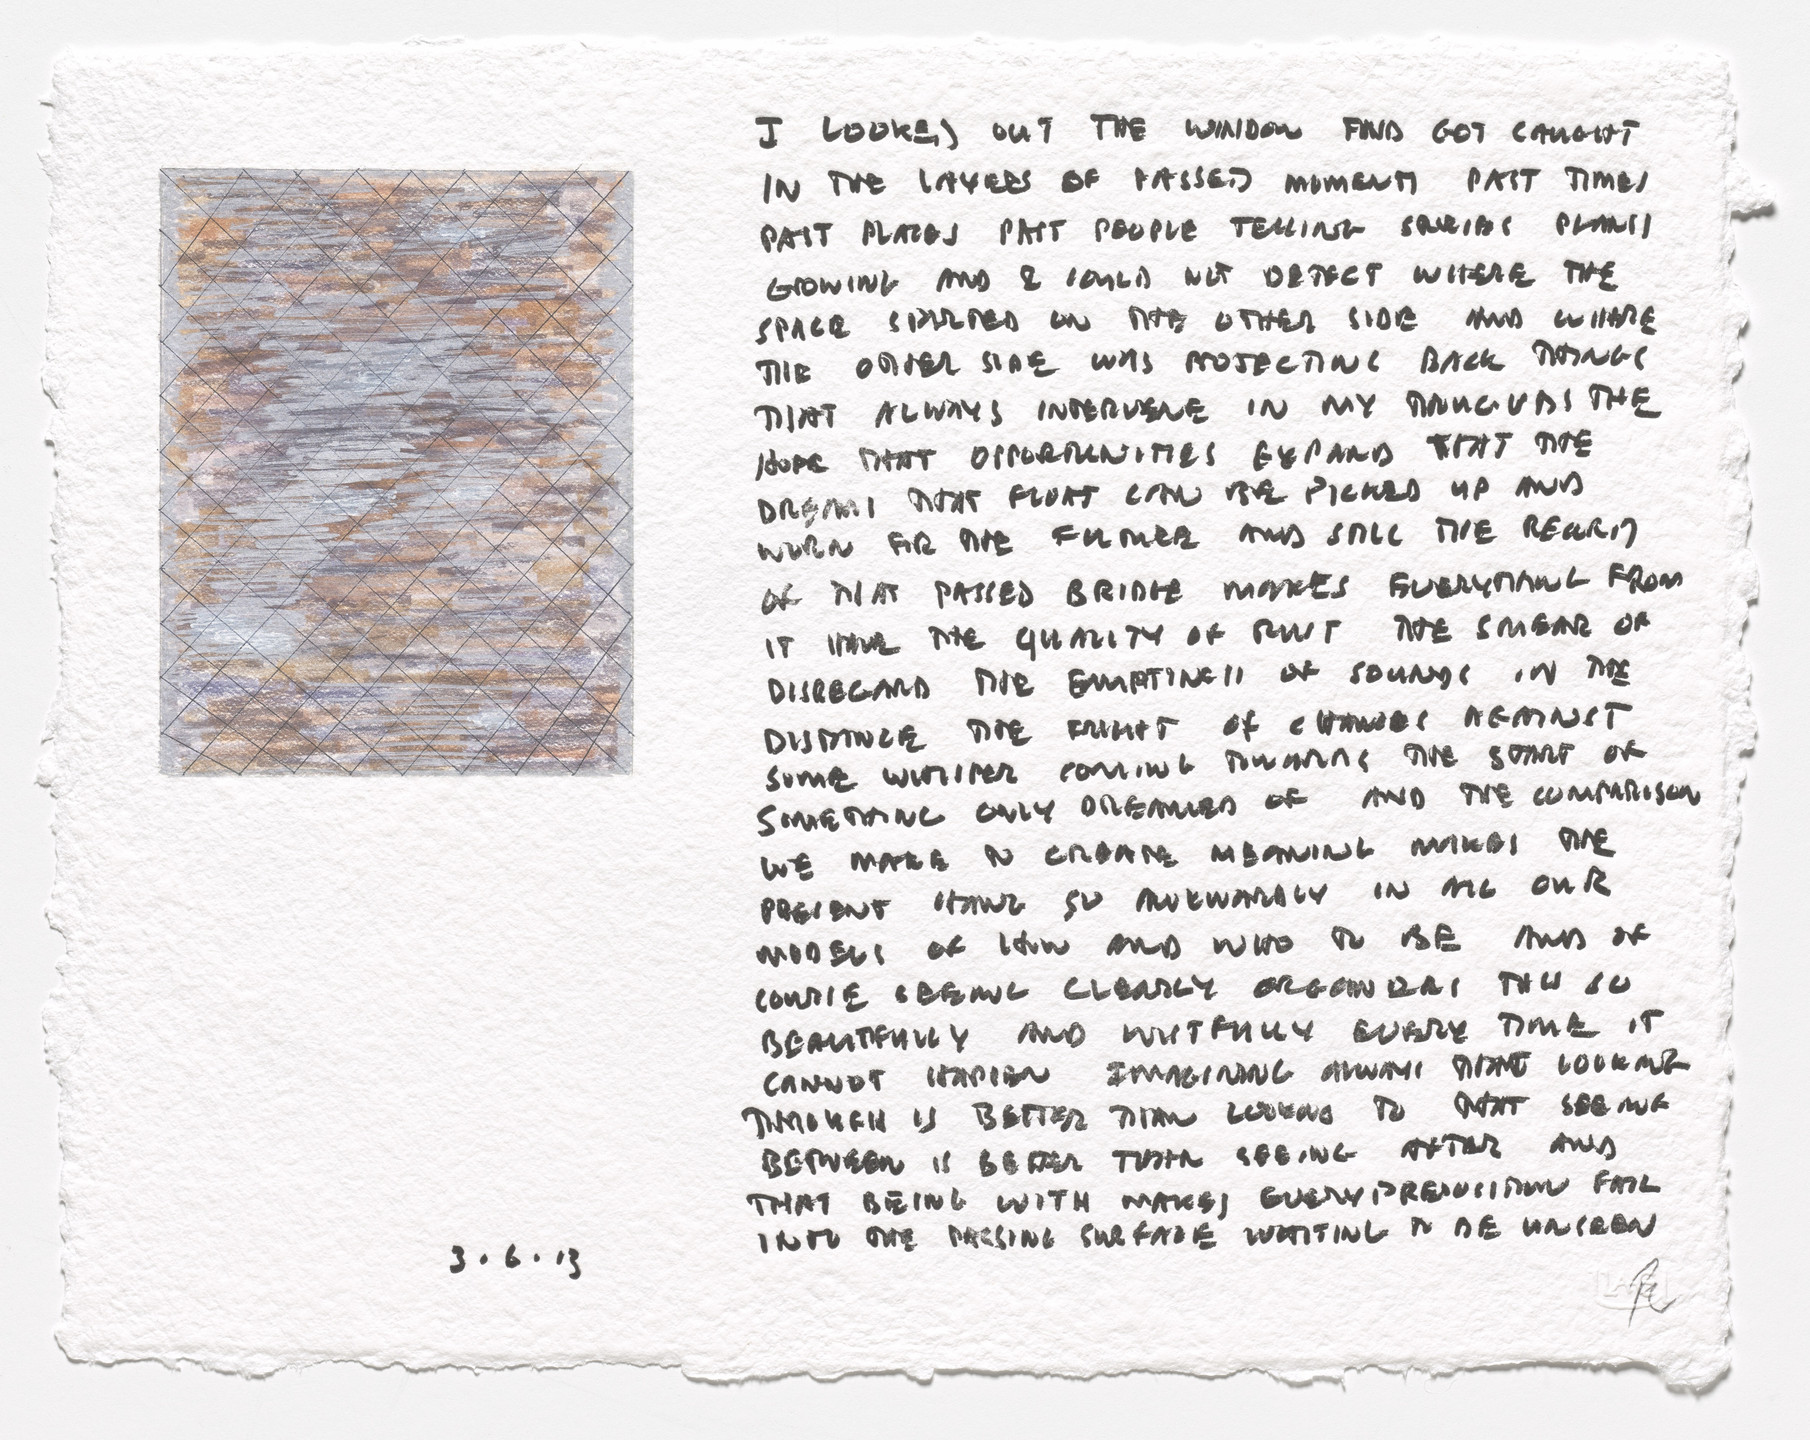 I LOOKED OUT THE WINDOW AND GOT CAUGHT
IN THE LAYERS OF PASSED MOMENTS PAST TIMES
PAST PLACES PAST PEOPLE TELLING STORIES PLANTS
GROWING AND I COULD NOT DETECT WHERE THE
SPACE STARTED ON THE OTHER SIDE AND WHERE
THE OTHER SIDE WAS PROJECTING BACK THINGS
THAT ALWAYS INTERVENE IN MY THOUGHTS THE
HOPE THAT OPPORTUNITIES EXPAND THAT THE
DREAMS THAT FLOAT CAN BE PICKED UP AND
WORN FOR THE FUTURE AND STILL THE
OF THAT PASSED BRIDGE MAKES EVERYTHING FROM
IT HAVE THE QUALITY OF RUST THE SMEAR OF
DISREGARD THE EMPTINESS OF SOUNDS IN THE
DISTANCE THE FRIGHT OF CHANGES AGAINST
SOME WHISPER COMING TOWARDS THE START OF
SOMETHING ONLY DREAMED OF AND THE COMPARISON
WE MAKE TO CREATE MEANING MAKES THE
PRESENT HANG SO AWKWARDLY IN ALL OUR
MODELS OF HOW AND WHO TO BE AND OF
COURSE SEEING CLEARLY ORGANIZES THIS SO
BEAUTIFULLY AND WISTFULLY EVERY TIME IT
CANNOT HAPPEN IMAGINING ALWAYS THAT LOOKING
THROUGH IS BETTER THAN LOOKING TO THAT SEEING
BETWEEN IS BETTER THAN SEEING AFTER AND
THAT BEING WITH MAKES EVERY PREPOSITION FALL
INTO THE PASSING SURFACE WAITING TO BE UNSEEN
3.6.13